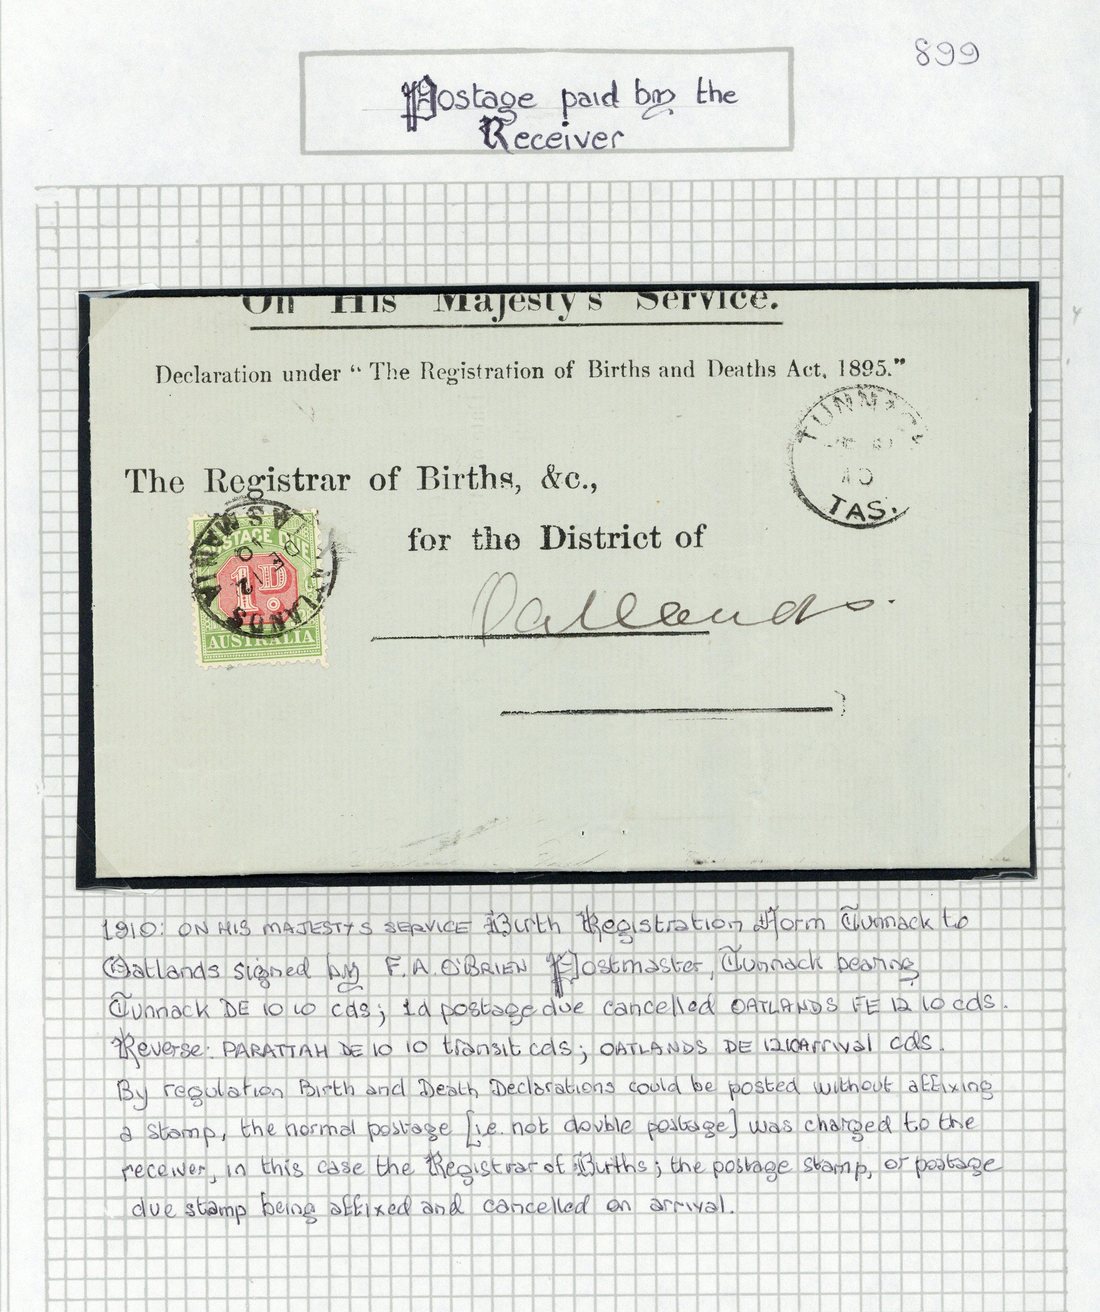 899
Postage paid by the
Receiver
On His Majesty's Service.
Declaration under “ The Registration of Births and Deaths Act, 1895.”
TUNNACK
10
TAS.
The Registrar of Births, &c.,
for the District of
Oatlands.
POSTAGE DUE
1D.
AUSTRALIA
OATLANDS
TASMANIA
DE 12
10
1910: ON HIS MAJESTYS SERVICE Birth Registration Form Tunnack to
Oatlands signed by F.A. O'BRIEN Postmaster, Tunnack bearing
Tunnack DE 10 10 cds; 1d postage due cancelled OATLANDS FE 12 10 cds.
Reverse: PARATTAH DE 10 10 transit cds; OATLANDS DE 12 10 Arrival cds.
By regulation Birth and Death Declarations could be posted without affixing
a stamp, the normal postage [i.e. not double postage] was charged to the
receiver, in this case the Registrar of Births; the postage stamp, or postage
due stamp being affixed and cancelled on arrival.